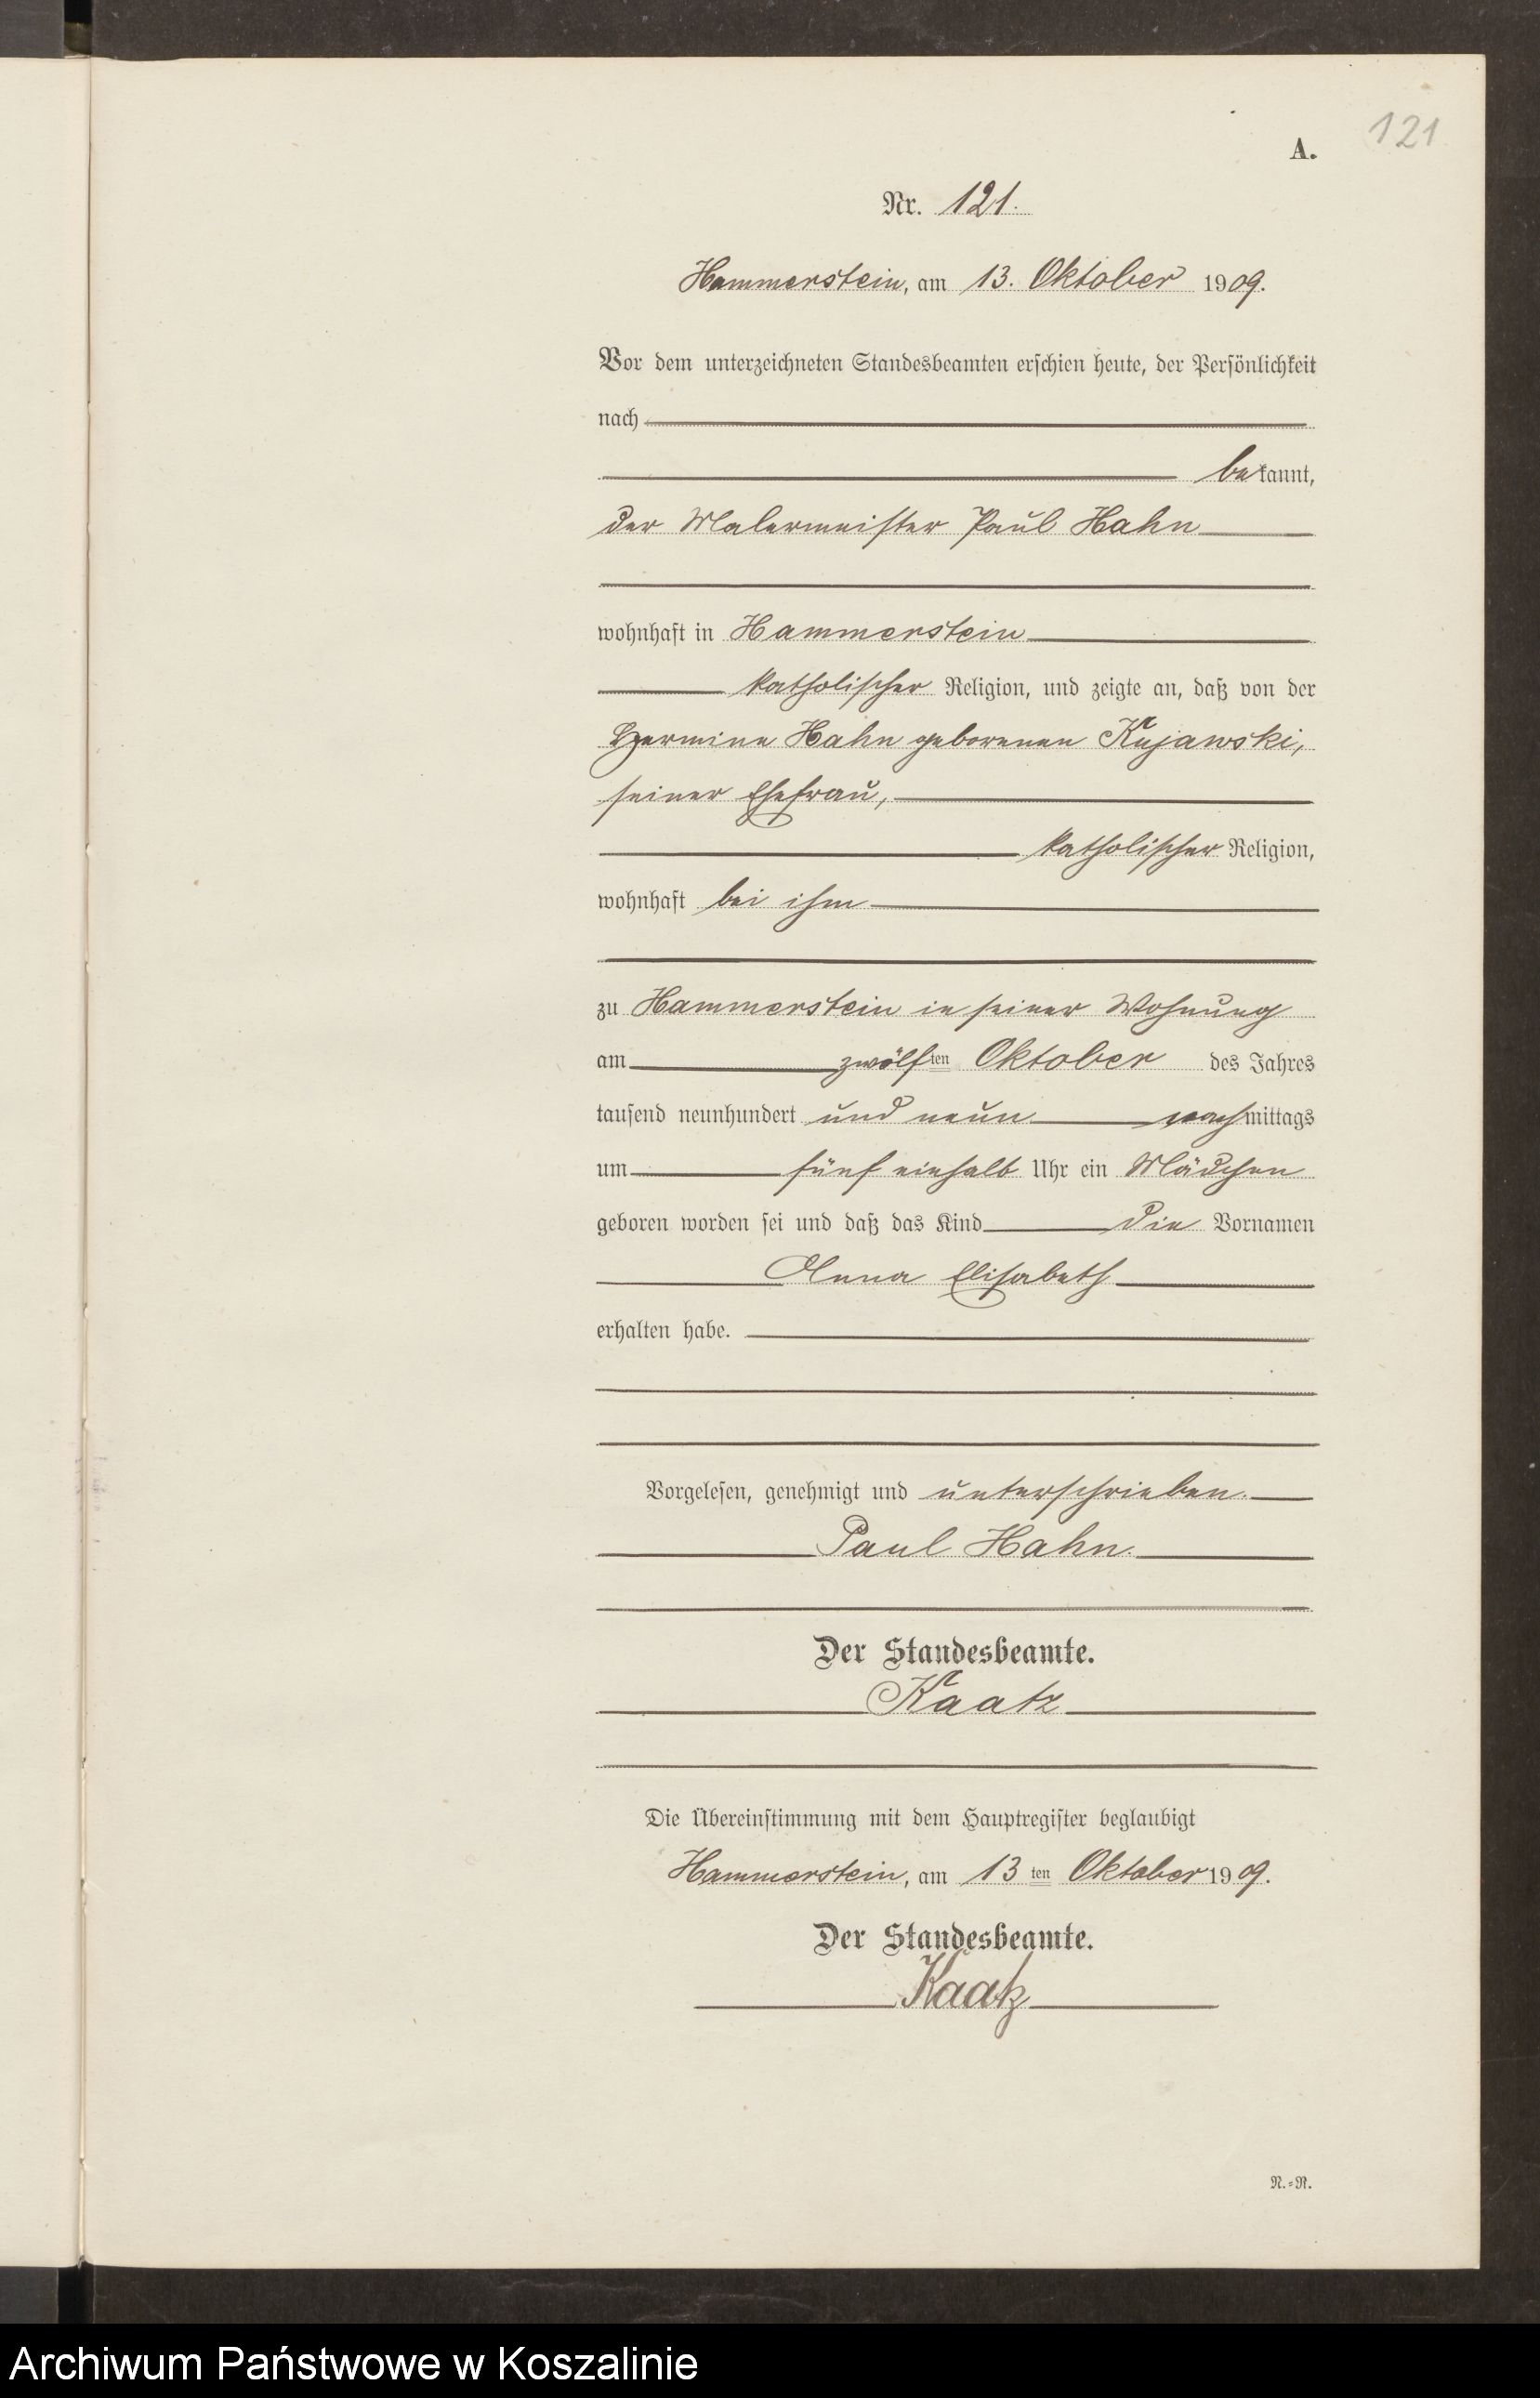 121
A.
Nr. 121.
Hammerstein, am 13. Oktober 1909.
Vor dem unterzeichneten Standesbeamten erschien heute, der Persönlichkeit
nach
bekannt,
der Malermeister Paul Hahn
wohnhaft in Hammerstein
katholischer Religion, und zeigte an, daß von der
Hermine Hahn geborenen Kujawski,
seiner Ehefrau,
katholischer Religion,
wohnhaft bei ihm
zu Hammerstein in seiner Wohnung
am zwölften Oktober des Jahres
tausend neunhundert und neun nachmittags
um fünf einhalb Uhr ein Mädchen
geboren worden sei und daß das Kind die Vornamen
Anna Elisabeth
erhalten habe.
Vorgelesen, genehmigt und unterschrieben.
Paul Hahn.
Der Standesbeamte.
Kaatz
Die Übereinstimmung mit dem Hauptregister beglaubigt
Hammerstein, am 13ten Oktober 1909.
Der Standesbeamte.
Kaatz
N.=R.
Archiwum Państwowe w Koszalinie